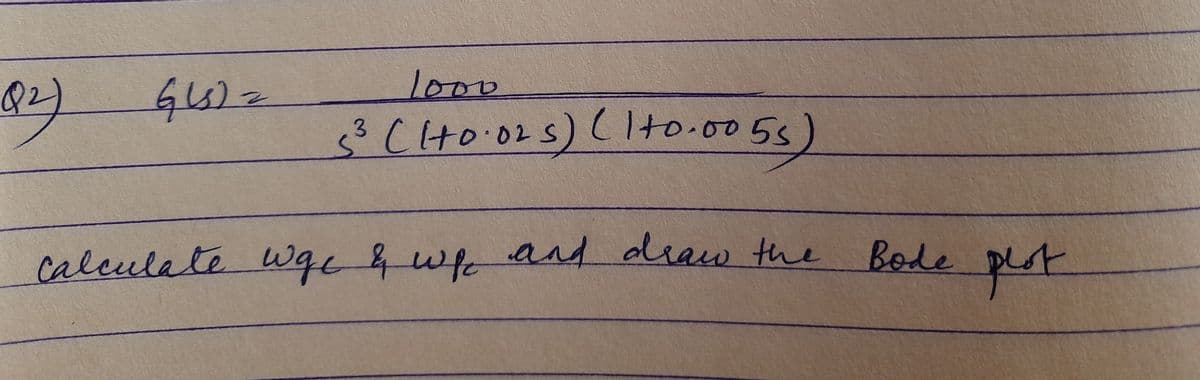 Q2) G(s) = 1000
s³ (1+0.02s) (1+0.005s)
calculate wgc & wpc and draw the Bode plot